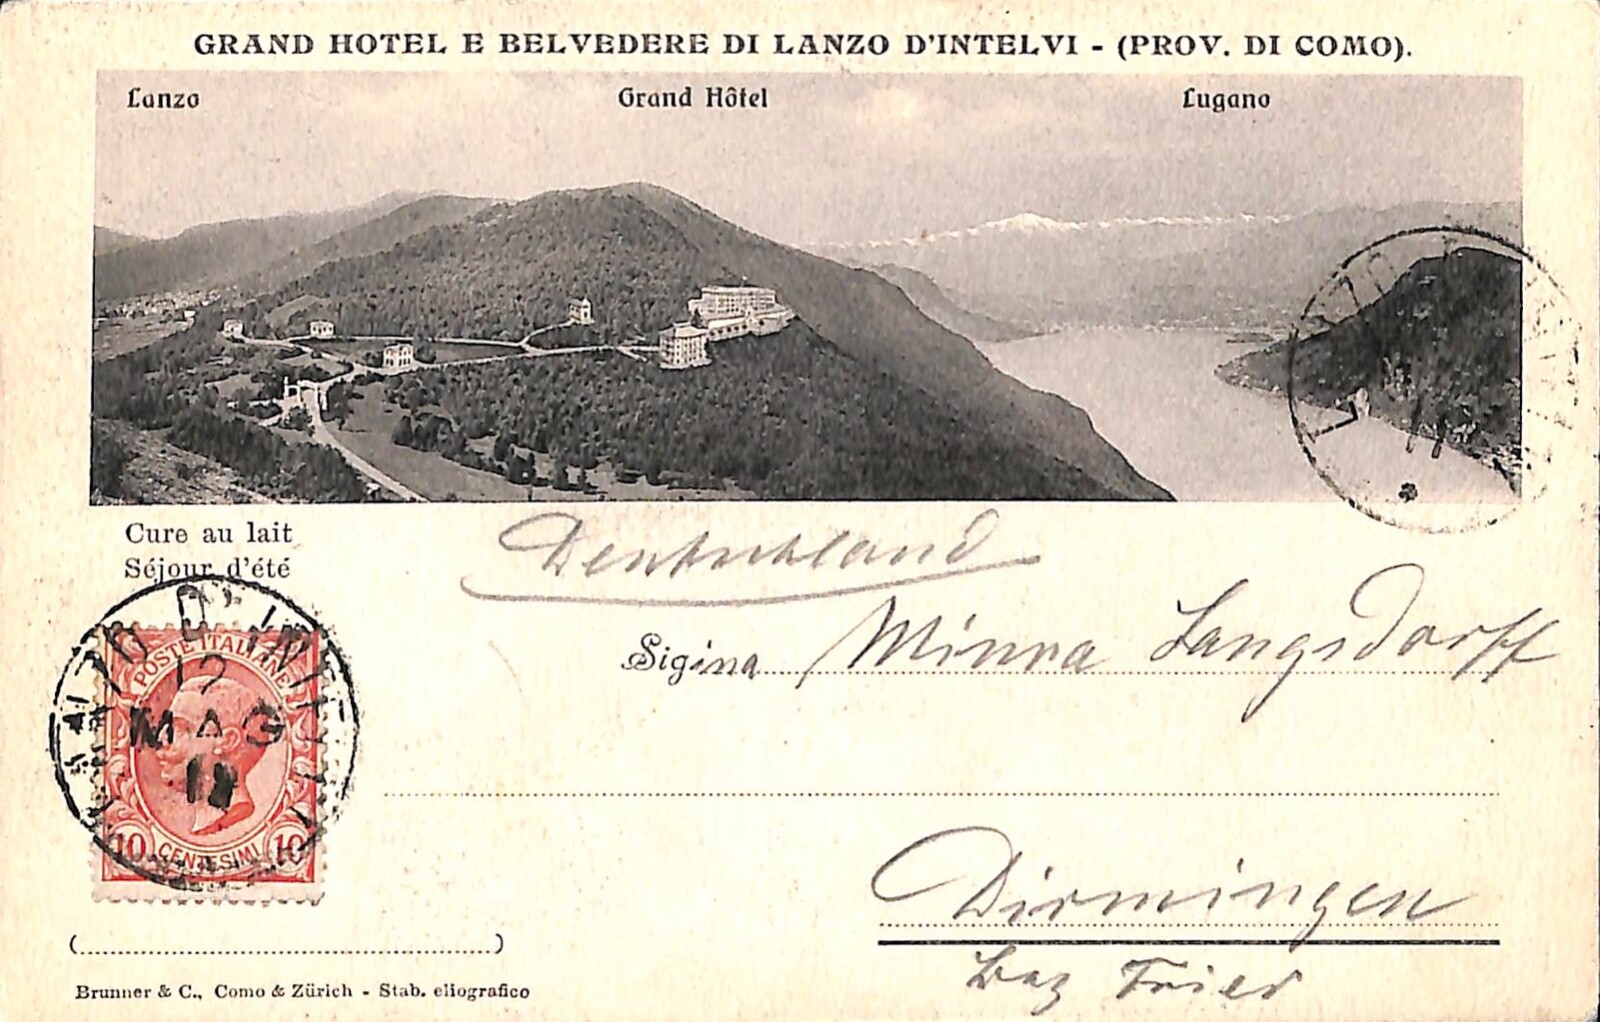 GRAND HOTEL E BELVEDERE DI LANZO D'INTELVI - (PROV. DI COMO).
Lanzo Grand Hôtel Lugano
Cure au lait
Séjour d'été
Deutschland
Sigina Minna Langsdorff
POSTE ITALIANE
12
MAG
10 CENTESIMI 10
Dirmingen
Bez Trier
(....................)
Brunner & C., Como & Zürich - Stab. eliografico